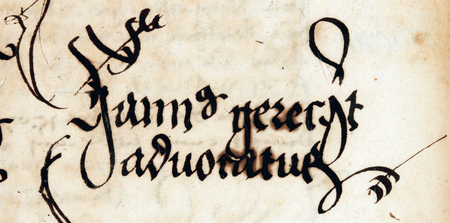 Jann⁹ gerecht
advocatus